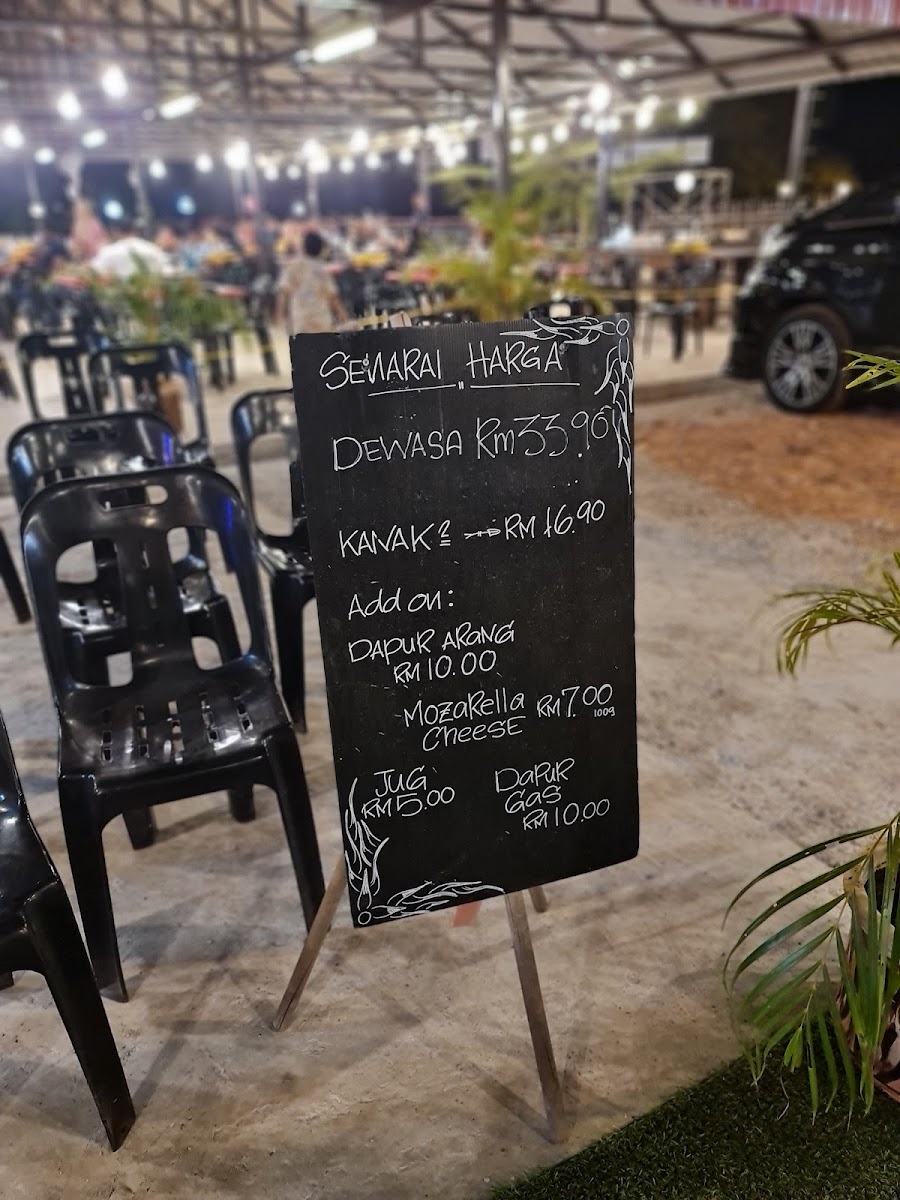 SENARAI HARGA
DEWASA RM33.90
KANAK2 → RM 16.90
Add on:
DAPUR ARANG
RM 10.00
MOZARELLA RM7.00
CHEESE 100g
JUG
RM 5.00
DAPUR
GAS
RM 10.00